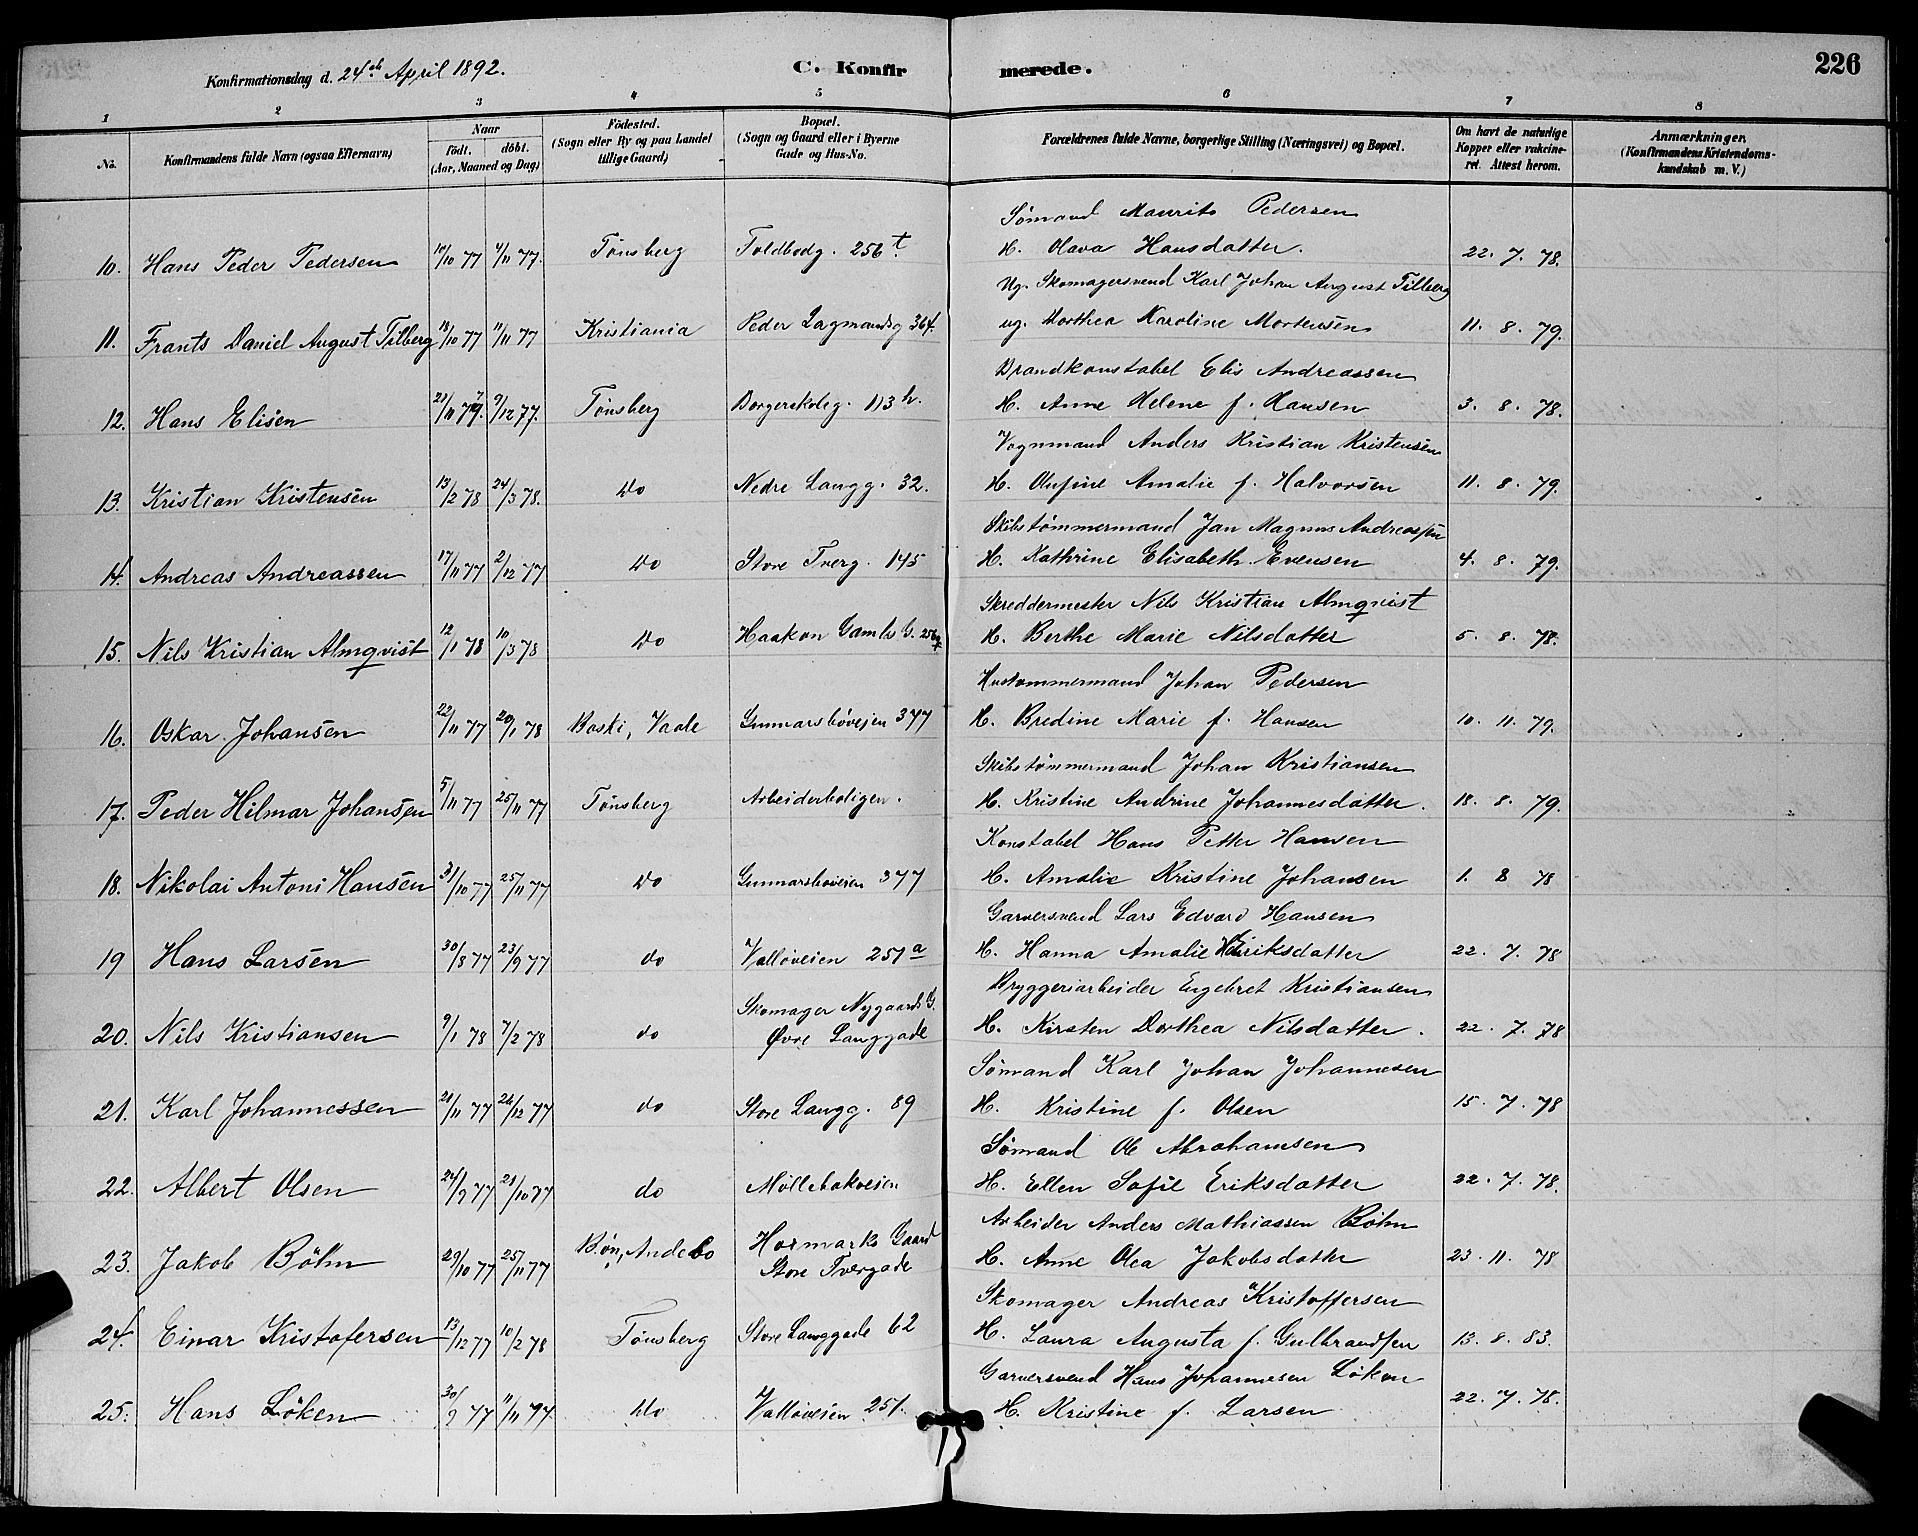 Konfirmationsdag d. 24de April 1892.
C. Konfirmerede.
226
1 2 3 4 5 6 7 8
No. Konfirmandens fulde Navn (ogsaa Efternavn) Naar födt. döbt. (Aar, Maaned og Dag) Födested. (Sogn eller By og paa Landet tillige Gaard) Bopæl. (Sogn og Gaard eller i Byerne Gade og Hus-No. Forældrenes fulde Navne, borgerlige Stilling (Næringsvei) og Bopæl. Om havt de naturlige Kopper eller vakcineret. Attest herom. Anmærkninger. (Konfirmandens Kristendomskundskab m. V.)
Sømand Maurits Pedersen
10. Hans Peder Pedersen 10/10 77 4/11 77. Tønsberg Toldbodg. 256 t. H. Olava Hansdatter. 22. 7. 78.
Ug. Skomagersvend Karl Johan August Tilberg
11. Frants Daniel August Tilberg 18/10 77 11/11 77 Kristiania Peder Lagmandsg 364. ug. Dorthea Karoline Mortensen 11. 8. 79.
Brandkonstabel Elis Andreassen
12. Hans Elisen 21/11 77. 9/12 77. Tønsberg Borgerskoleg. 113 h. H. Anne Helene f. Hansen 3. 8. 78.
Vognmand Anders Kristian Kristensen
13. Kristian Kristensen 13/2 78 24/3 78. Do Nedre Langg. 32. H. Olufine Amalie f. Halvorsen 11. 8. 79.
Skibstømmermand Jan Magnus Andreassen
14. Andreas Andreassen 17/11 77 2/12 77 Do Store Tverg. 145 H. Kathrine Elisabeth Evensen 4. 8. 79.
Skreddermester Nils Kristian Almqvist
15. Nils Kristian Almqvist 12/1 78 10/3 78 Do Haakon Gamles G. H. Berthe Marie Nilsdatter 5. 8. 78.
Hustømmermand Johan Pedersen
16. Oskar Johansen 22/11 77 20/1 78 Baski, Vaale Gunnarsbøveien 377 H. Bredine Marie f. Hansen 10. 11. 79.
Skibstømmermand Johan Kristiansen
17. Peder Hilmar Johansen 5/11 77 25/11 77 Tønsberg Arbeiderboligen. H. Kristine Andrine Johannesdatter. 18. 8. 79.
Konstabel Hans Petter Hansen
18. Nikolai Antoni Hansen 31/10 77 25/11 77 Do Gunnarsboveien 377 H. Amalie Kristine Johansen 1. 8 78
Garversvend Lars Edvard Hansen
19 Hans Larsen 30/8 77 23/9 77 do Valløveien 251 a H. Hanna Amalie Henriksdatter 22. 7. 78
Bryggeriarbeider Engebret Kristiansen
20. Nils Kristiansen 9/1 78 7/2 78 do Skomager Nygaards G. Øvre Langgade H. Kirsten Dorthea Nilsdatter. 22. 7. 78
Sømand Karl Johan Johannesen
21. Karl Johannessen 21/11 77 26/12 77 do Store Langg. 89 H. Kristine f. Olsen 15. 7. 78
Sømand Ole Abrahamsen
22. Albert Olsen 24/9 77 21/10 77 do Møllebakveien H. Ellen Sofie Eriksdatter 22. 7. 78.
Arbeider Anders Mathiassen Böhm
23. Jakob Böhm 29/10 77 25/11 77 Bøn, Andebo Hormarks Gaard Store Tvergade H. Anne Olea Jakobsdatter 23. 11. 78
Skomager Andreas Kristoffersen
24. Einar Kristofersen 13/12 77 10/2 78 Tønsberg Store Langgade 62 H. Laura Augusta f. Gulbrandsen 13. 8. 83.
Garversvend Hans Johannesen Løken
25. Hans Løken 30/9 77 11/11 77. Do Valløveien 251. H. Kristine f. Larsen 22. 7. 78.